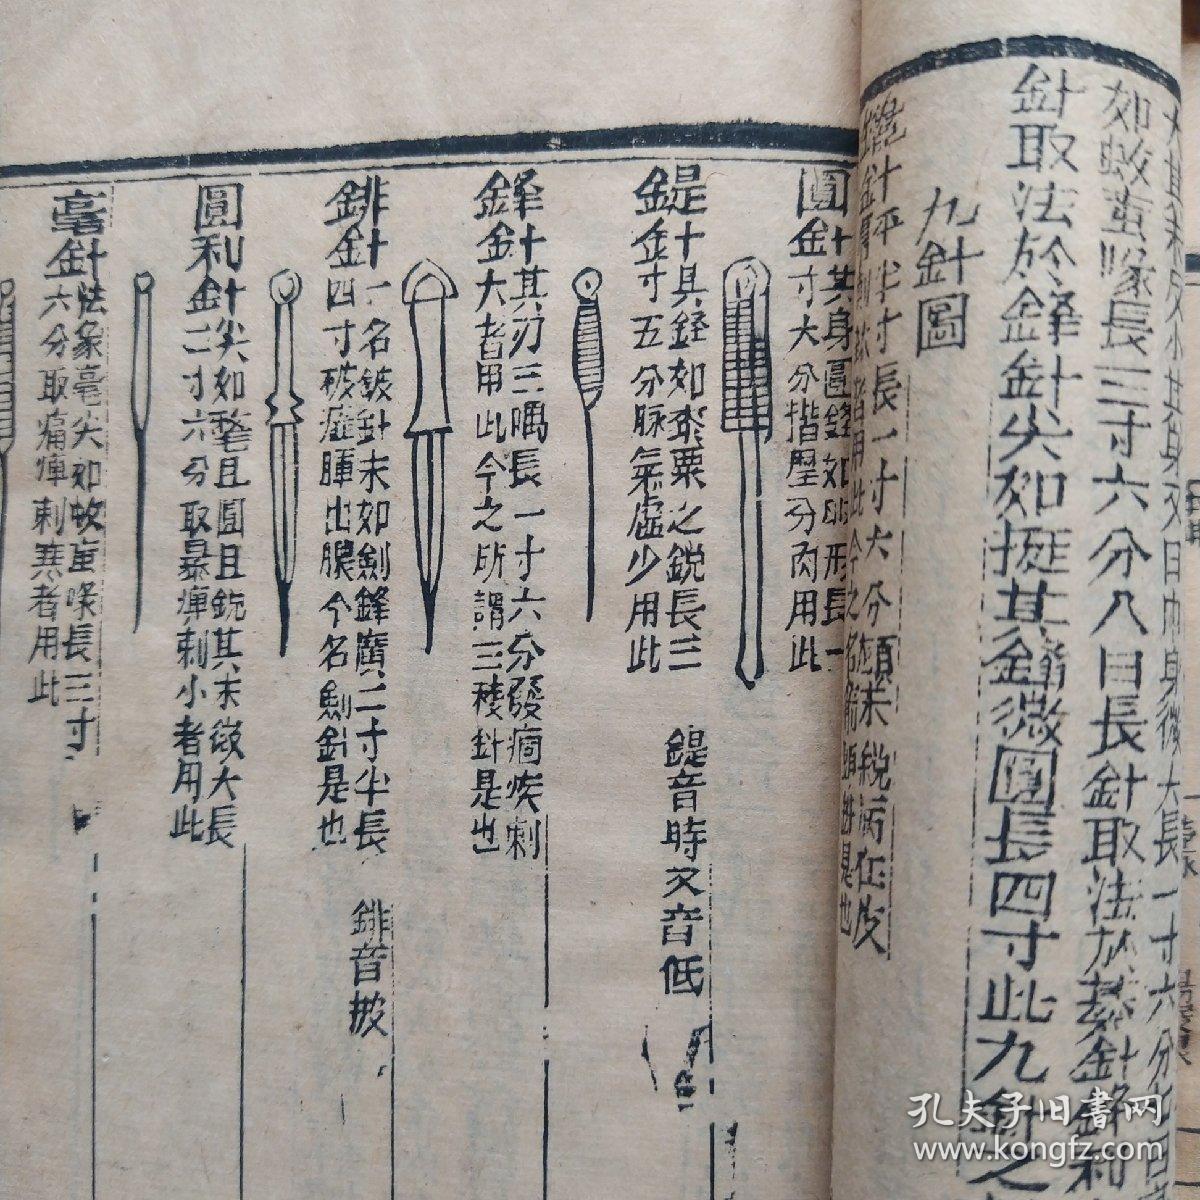 如蚊蝱喙長三寸六分八曰長針取法於綦針鋒利
針取法於鋒針尖如挺其鋒微圓長四寸此九針之
九針圖
鑱針平半寸長一寸六分頭末銳病在皮
圓針其身圓鋒如卵形長一
寸六分揩摩分肉用此
鍉針其鋒如黍粟之銳長三
寸五分脉氣虛少用此
鍉音時又音低
鋒針其刃三隅長一寸六分發痼疾刺
大者用此今之所謂三稜針是也
鈹針一名鈹針末如劍鋒廣二寸半長
四寸破癰腫出膿今名劍針是也
鈹音披
圓利針尖如氂且圓且銳其末微大長
一寸六分取暴痺刺小者用此
毫針法象毫尖如蚊蝱喙長三寸
六分取痛痺刺寒者用此
孔夫子旧書网
www.kongfz.com